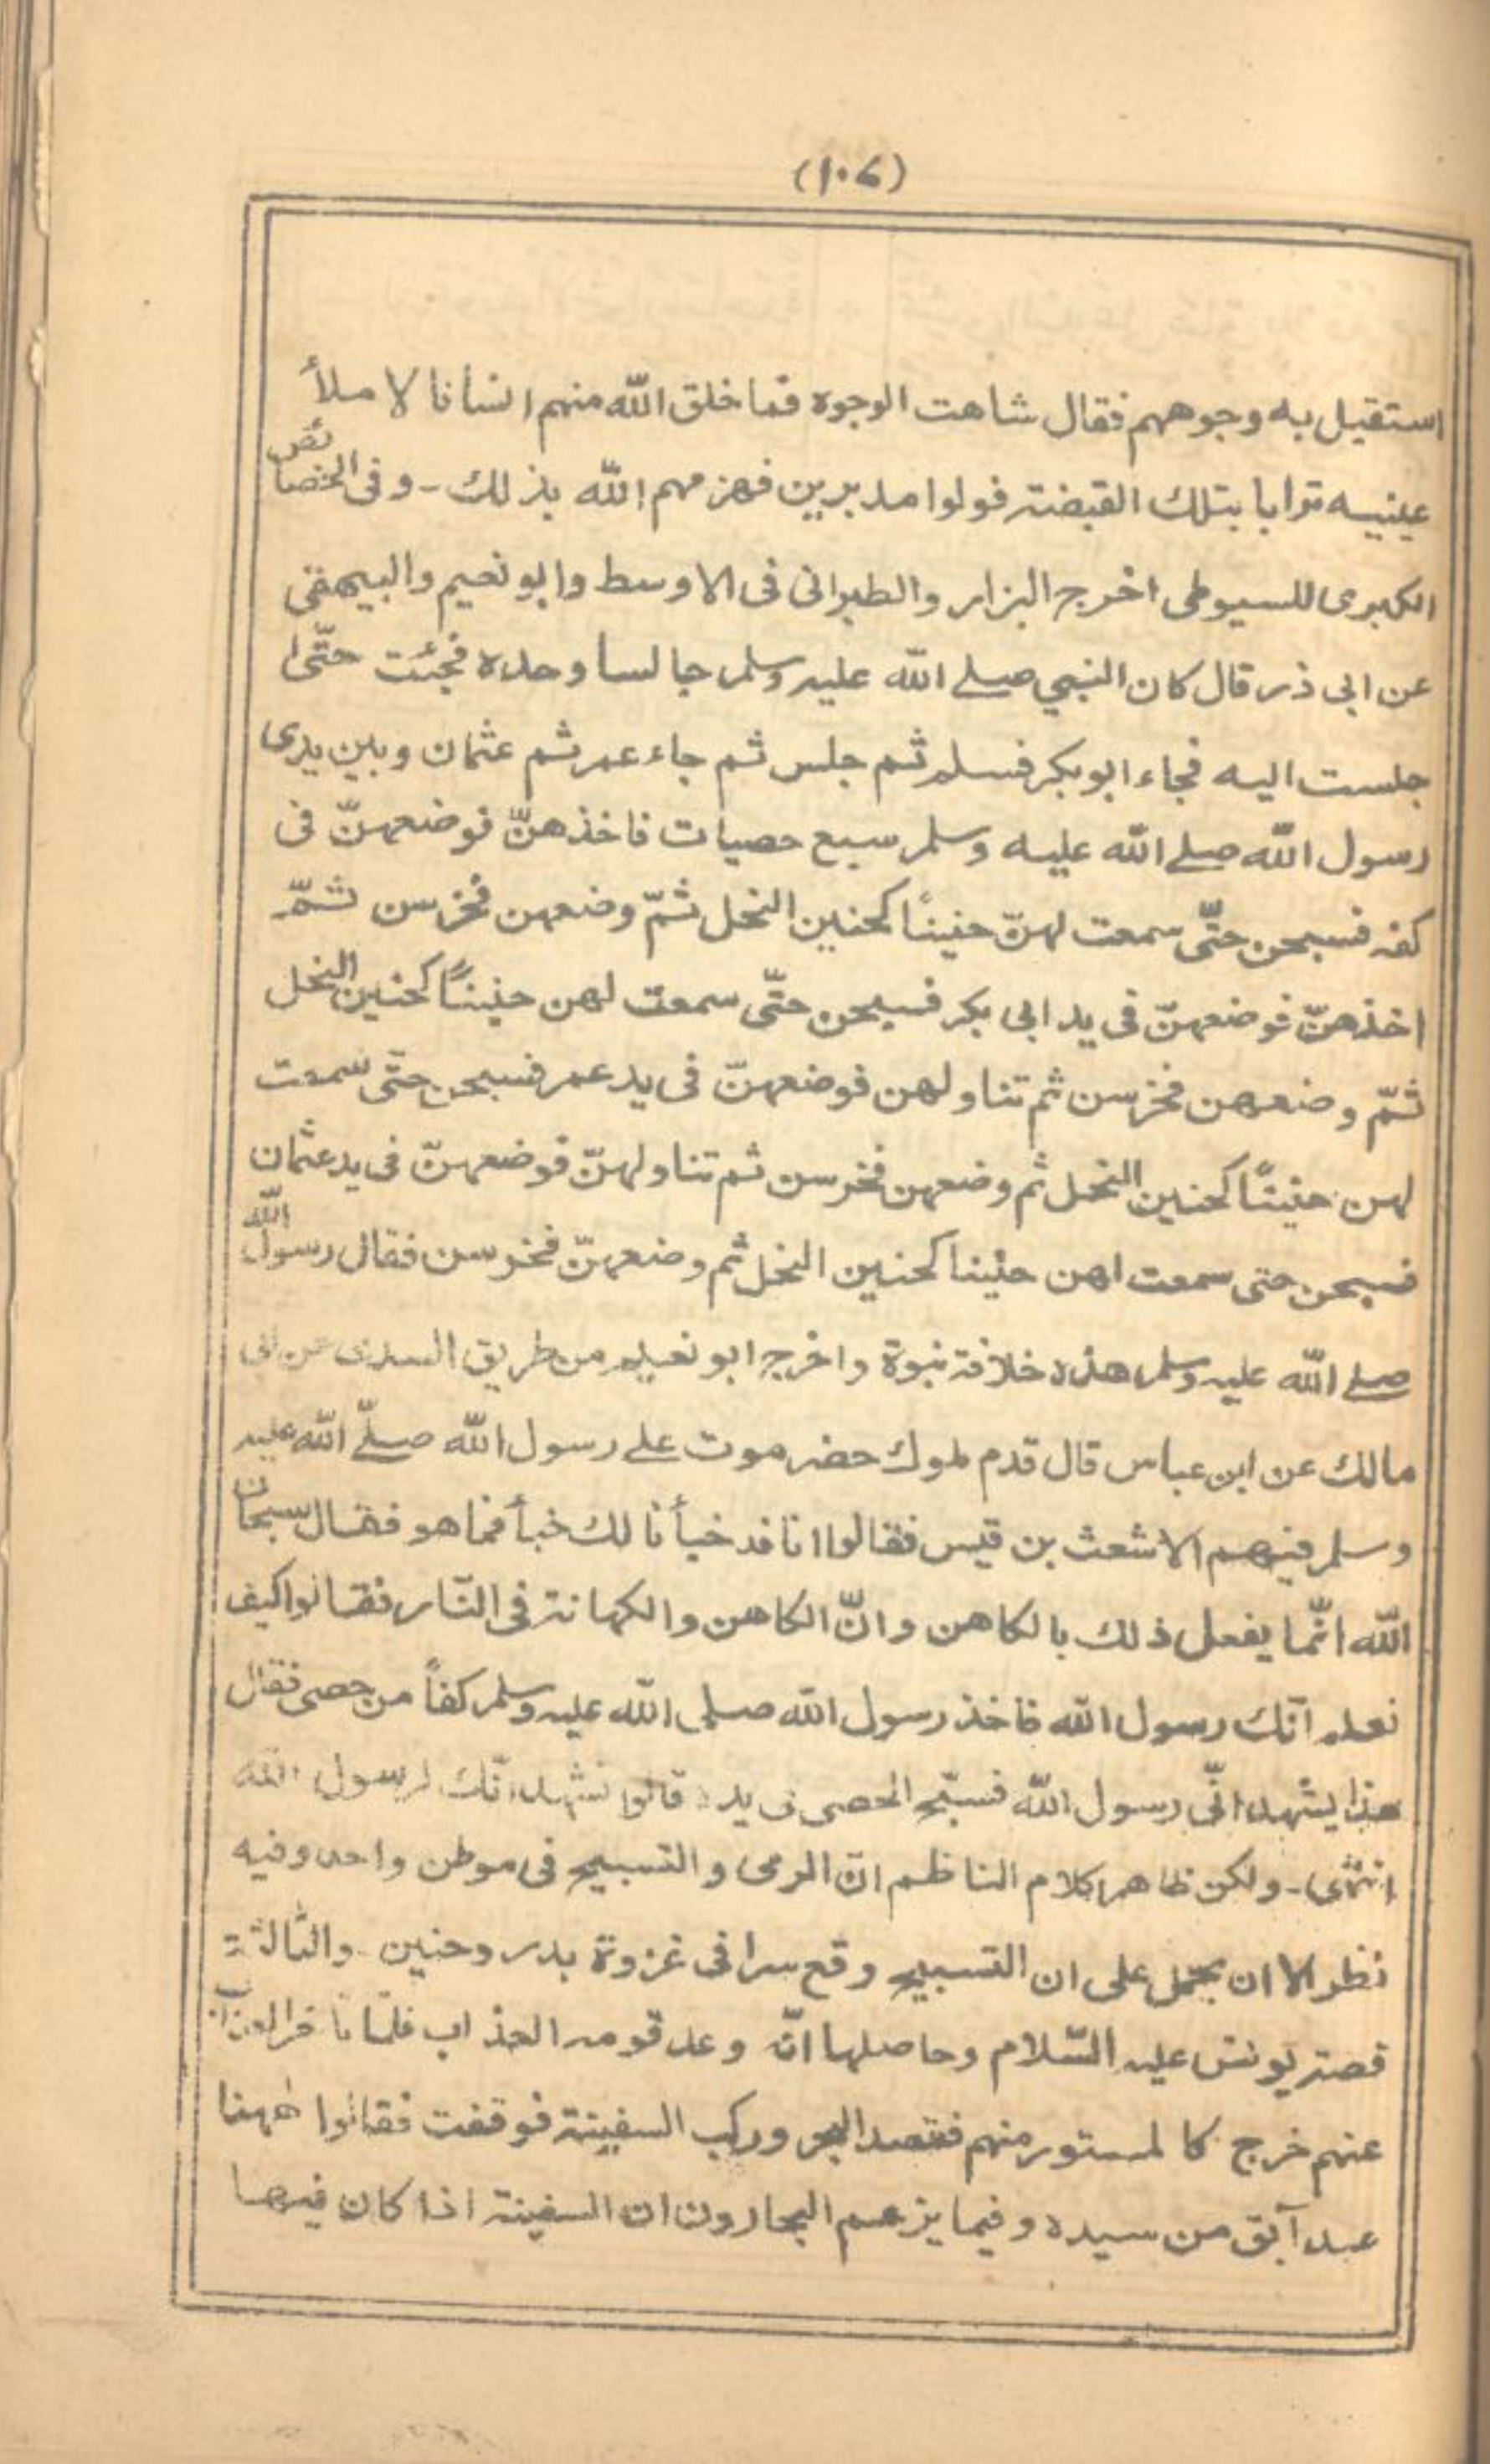 (١٠٦)
استقبل به وجوههم فقال شاهت الوجوه فما خلق الله منهم انسانا لا ملأ
عينيه ترابا بتلك القبضة فولوا مدبرين فهزمهم الله بذلك - وفى الخصائص
الكبرى للسيوطى اخرج البزار والطبرانى فى الاوسط وابو نعيم والبيهقى
عن ابى ذر قال كان النبي صلے الله عليه وسلم جالسا وحده فجئت حتّىٰ
جلست اليه فجاء ابو بكر فسلم ثم جلس ثم جاء عمر ثم عثمان وبين يدى
رسول الله صلے الله عليه وسلم سبع حصيات فاخذهنّ فوضعهنّ فى
كفه فسبحن حتّى سمعت لهنّ حنينًا كحنين النحل ثمّ وضعهن فخرسن ثمّ
اخذهنّ فوضعهنّ فى يد ابى بكر فسبحن حتّى سمعت لهن حنينًا كحنين النحل
ثمّ وضعهن فخرسن ثم تناولهن فوضعهنّ فى يد عمر فسبحن حتّى سمعت
لهن حنينًا كحنين النحل ثم وضعهن فخرسن ثم تناولهنّ فوضعهنّ فى يد عثمان
فسبحن حتى سمعت لهن حنينا كحنين النحل ثم وضعهنّ فخرسن فقال رسول الله
صلے الله عليه وسلم هذه خلافة نبوة واخرج ابو نعيم من طريق السدى عن ابى
مالك عن ابن عباس قال قدم ملوك حضرموت علے رسول الله صلّے الله عليه
وسلم فيهم الاشعث بن قيس فقالوا انا قد خبأنا لك خبأ فما هو فقال سبحان
الله انّما يفعل ذلك بالكاهن وانّ الكاهن والكهانة فى النّار فقالوا كيف
نعلم انّك رسول الله فاخذ رسول الله صلى الله عليه وسلم كفاً من حصى فقال
هذا يشهد انّى رسول الله فسبّح الحصى فى يده قالوا نشهد انّك لرسول الله
انتهى - ولكن ظاهر كلام الناظم انّ الرمى والتسبيح فى موطن واحد وفيه
نظر الا ان يحتمل على ان التسبيح وقع سرا فى غزوة بدر وحنين - والثالثة
قصة يونس عليه السّلام وحاصلها انّه وعد قومه العذاب فلمّا تاخر العذاب
عنهم خرج كالمستور منهم فقصد البحر وركب السفينة فوقفت فقالوا ههنا
عبد آبق من سيده وفيما يزعم البحارون ان السفينة اذا كان فيها